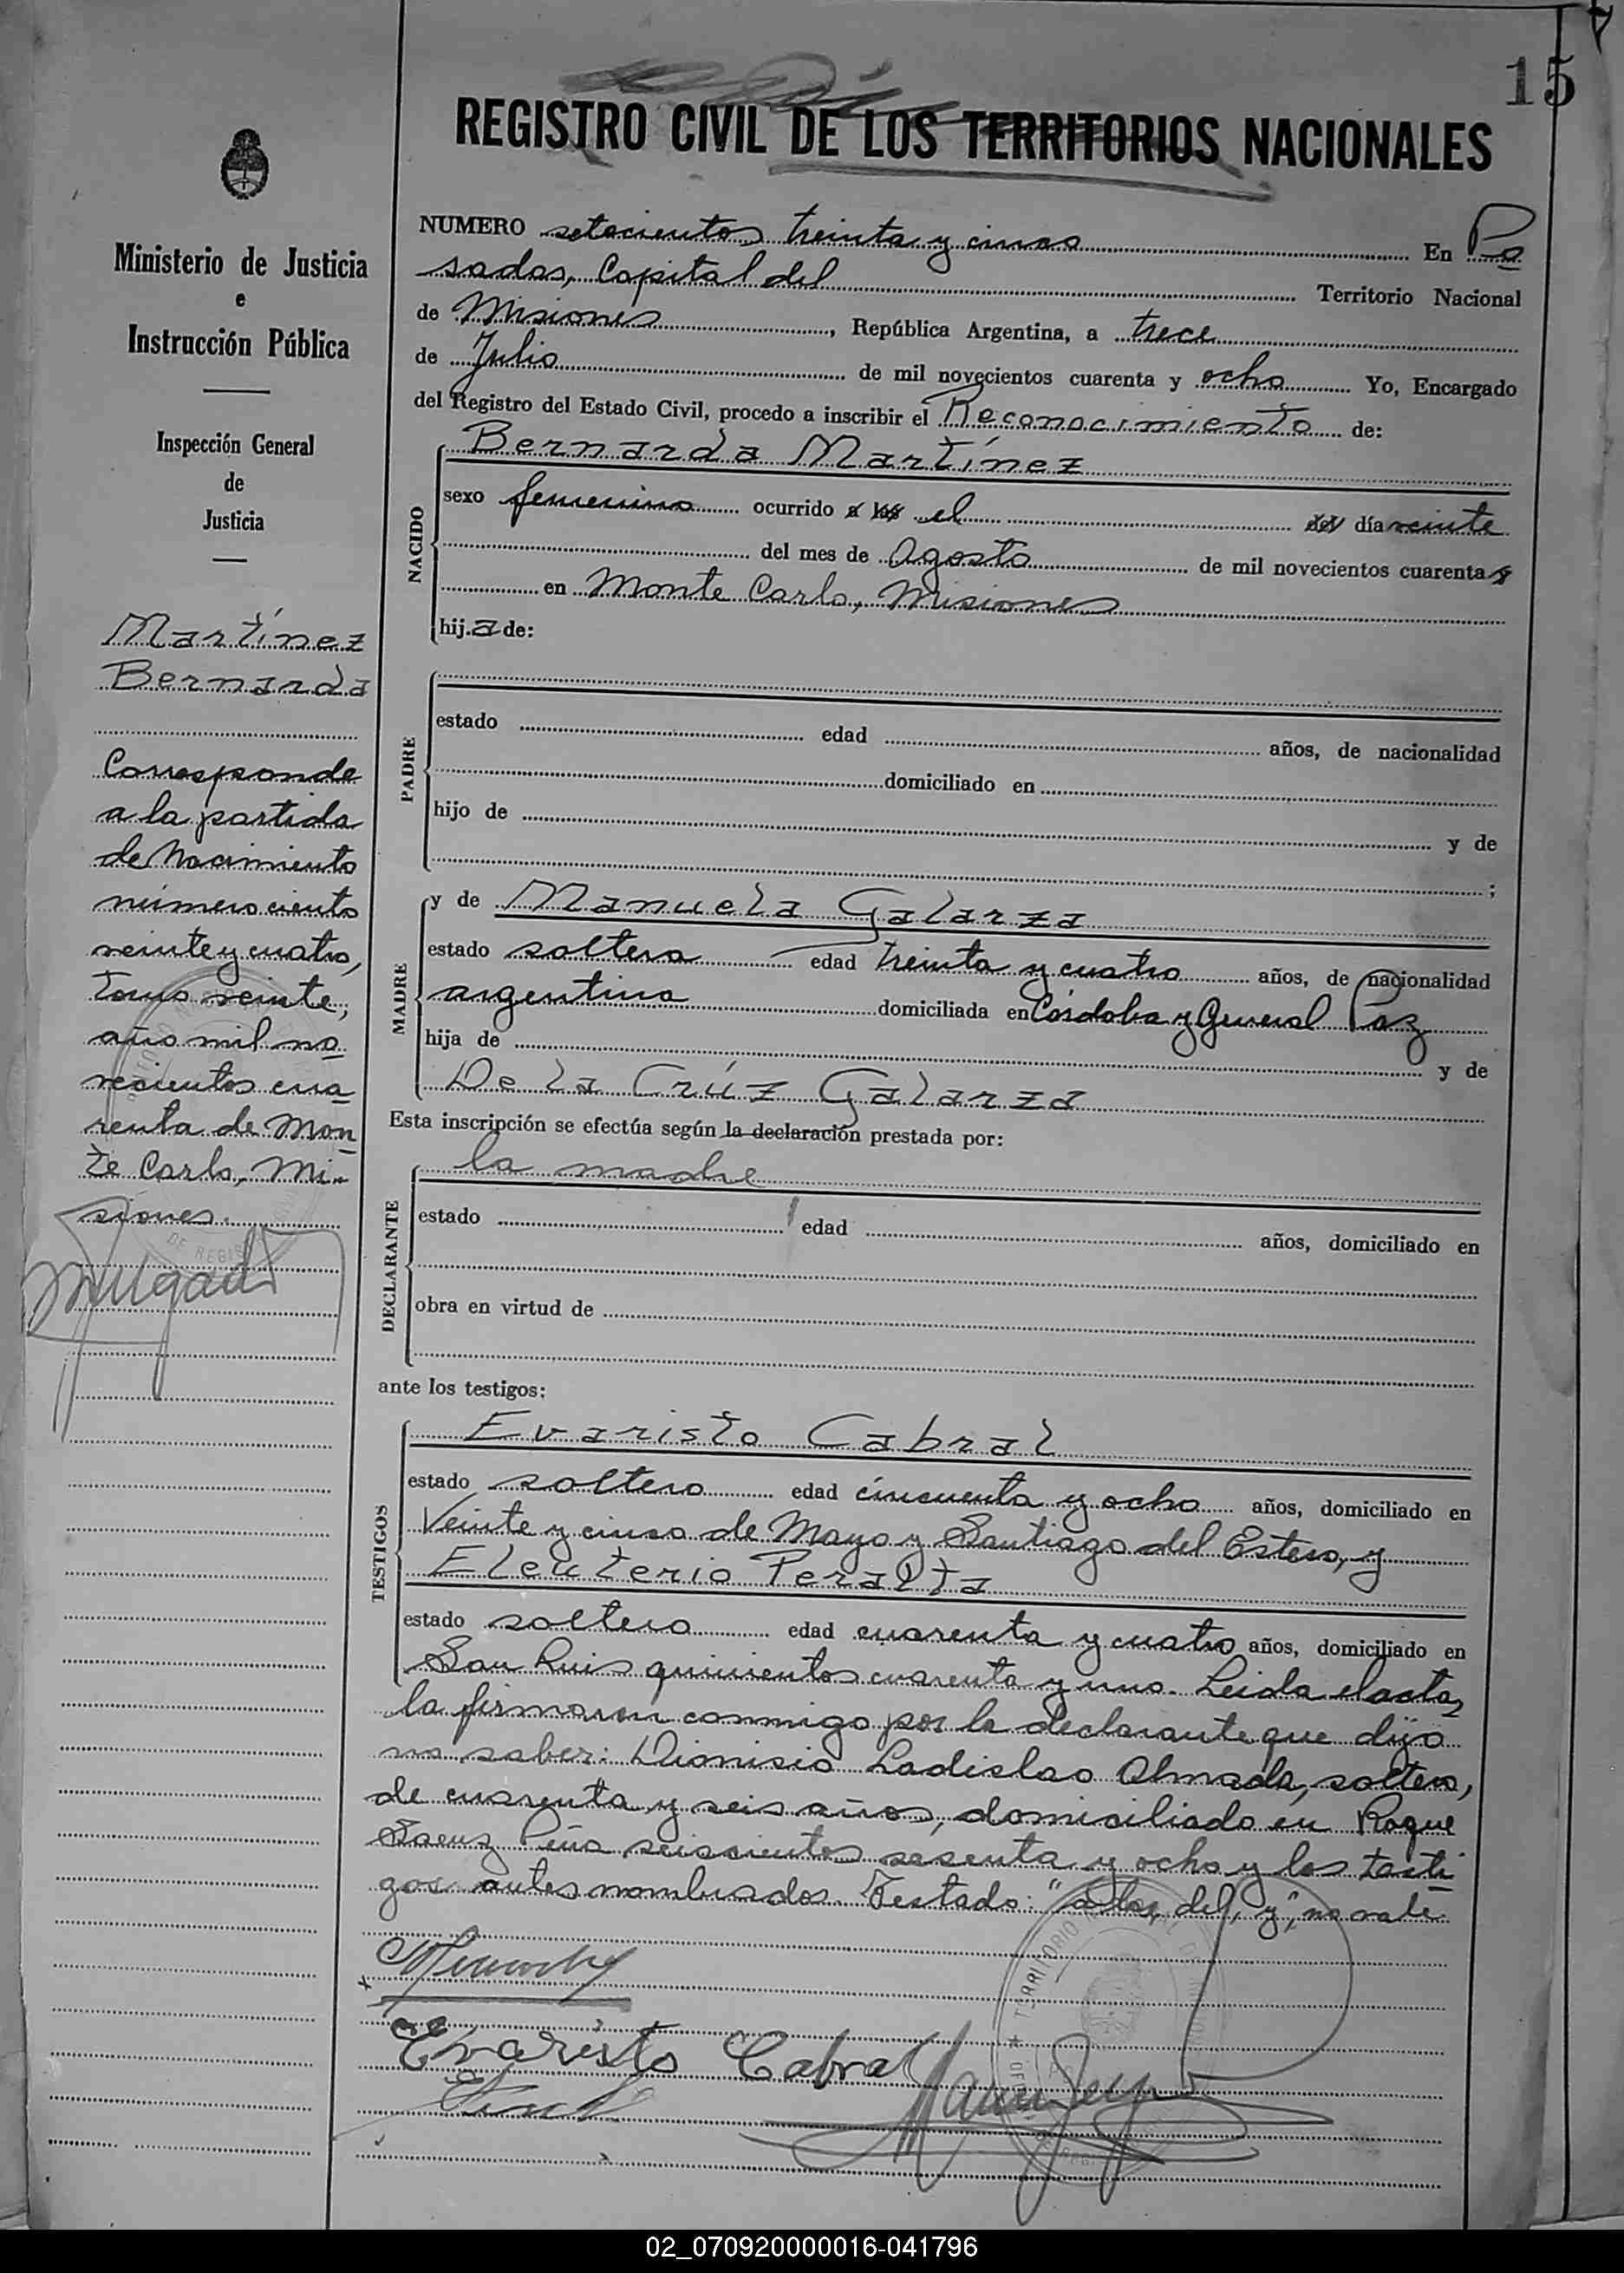 15
REGISTRO CIVIL DE LOS TERRITORIOS NACIONALES
Ministerio de Justicia
e
Instrucción Pública
Inspección General
de
Justicia
Martínez
Bernarda
Corresponde
a la partida
de Nacimiento
número ciento
veinte y cuatro,
tomo veinte,
año mil no
vecientos cua
renta de Mon
te Carlo, Mi-
siones.
NUMERO setecientos treinta y cinco En Po
sadas, Capital del Territorio Nacional
de Misiones, República Argentina, a trece
de Julio de mil novecientos cuarenta y ocho Yo, Encargado
del Registro del Estado Civil, procedo a inscribir el Reconocimiento de:
NACIDO
Bernarda Martínez
sexo femenino ocurrido a las el del día veinte
del mes de Agosto de mil novecientos cuarenta y
en Monte Carlo, Misiones
hij a de:
PADRE
estado edad años, de nacionalidad
domiciliado en
hijo de y de
;
MADRE
y de Manuela Galarza
estado soltera edad treinta y cuatro años, de nacionalidad
argentina domiciliada en Córdoba y General Paz
hija de y de
De la Crúz Galarza
Esta inscripción se efectúa según la declaración prestada por:
DECLARANTE
la madre
estado edad años, domiciliado en
obra en virtud de
ante los testigos:
TESTIGOS
Evaristo Cabral
estado soltero edad cincuenta y ocho años, domiciliado en
Veinte y cinco de Mayo y Santiago del Estero, y
Eleuterio Peralta
estado soltero edad cuarenta y cuatro años, domiciliado en
San Luis quinientos cuarenta y uno. Leida el acta,
la firmaron conmigo por la declarante que dijo
no saber: Dionisio Ladislao Almada, soltero,
de cuarenta y seis años, domiciliado en Roque
Saenz Peña seiscientos sesenta y ocho y los testi
gos antes nombrados. Testado: "a las, del, y", no vale
Evaristo Cabral
02_070920000016-041796